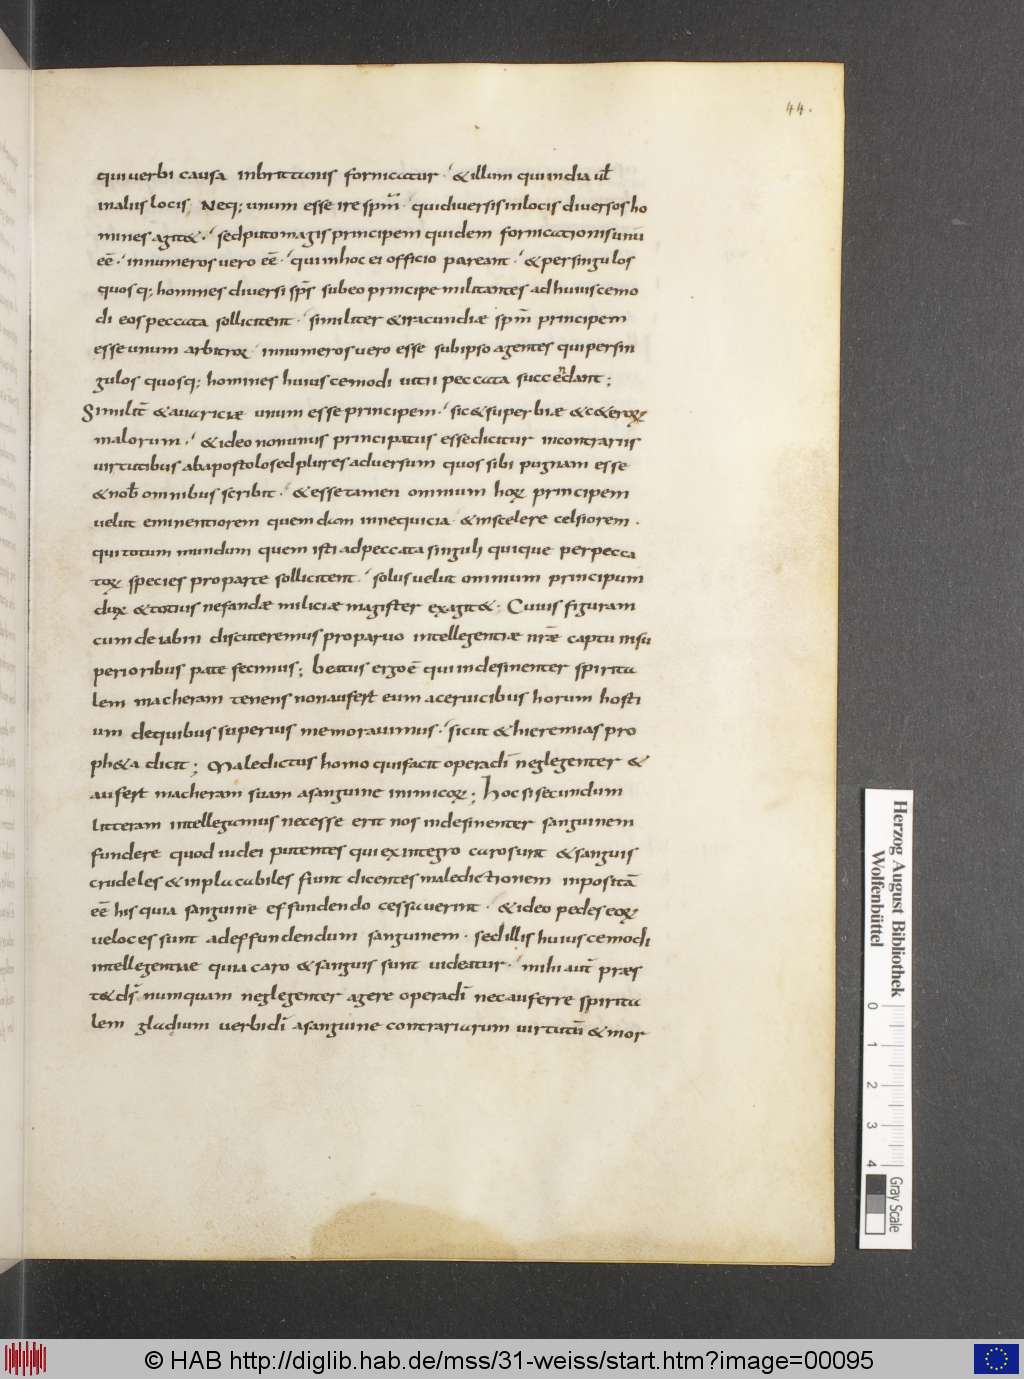 44.
qui uerbi causa inbrittanis fornicatur · & illum qui india ul̄
in aliis locis, Neq; unum esse ire spm̄ · qui diuersis in locis diuersos ho
mines agit& · sed puto magis principem quidem fornicationis unū
eē · innumeros uero eē · qui in hoc ei officio pareant · & per singulos
quosq; homines diuersi sp̄s sub eo principe militantes ad huiuscemo
di eos peccata sollicitent · similiter & iracundiæ spm̄ principem
esse unum arbitroꝝ · innumeros uero esse sub ipso agentes qui per sin
gulos quosq; homines huiuscemodi uitii peccata succendant;
Similit̄ & auariciæ unum esse principem · sic & superbiæ & c&eroꝝ
malorum · & ideo non unus principatus esse dicitur in contrariis
uirtutibus ab apostolo sed plures aduersum quos sibi pugnam esse
& nob̄ omnibus scribit · & esse tamen omnium hoꝝ principem
uelut eminentiorem quendam in nequicia · & in scelere celsiorem .
qui totum mundum quem isti ad peccata singuli quique per pecca
toꝝ species pro parte sollicitent · solus uelut omnium principum
dux & totius nefandæ miliciæ magister exagit&; Cuius figuram
cum de iabin discuteremus pro paruo intellegentiæ nr̄æ captu in su
perioribus patefecimus; beatus ergo ē qui indesinenter spirita
lem macheram tenens non aufert eum a ceruicibus horum hosti
um de quibus superius memorauimus · sicut & hieremias pro
ph&a dicit; Maledictus homo qui facit opera dī neglegenter &
aufert macheram suam a sanguine inimicoꝝ; hoc si secundum
litteram intellegamus necesse erit nos indesinenter sanguinem
fundere quod iudei putentes qui ex integro caro sunt & sanguis
crudeles & inplacabiles fiunt dicentes maledictionem inpositā
eē his qui a sanguine effundendo cessauerint · & ideo pedes eoꝝ
ueloces sunt ad effundendum sanguinem · sed illis huiuscemodi
intellegentiae quia caro & sanguis sunt uideatur · mihi aut̄ præs
t& ds̄ numquam neglegenter agere opera dī nec auferre spirita
lem gladium uerbi dī a sanguine contrariarum uirtutū & mor
Herzog August Bibliothek
Wolfenbüttel
0 1 2 3 4
Gray Scale
© HAB http://diglib.hab.de/mss/31-weiss/start.htm?image=00095